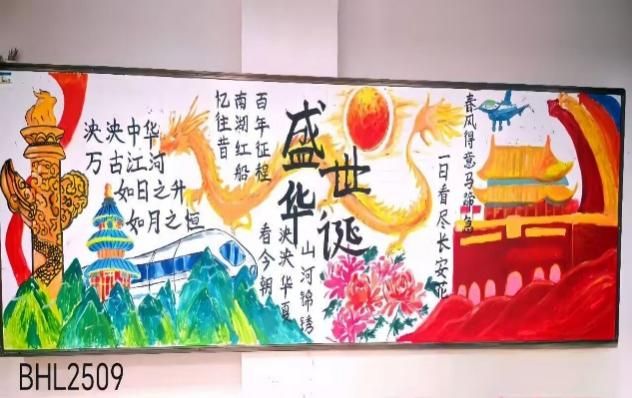 泱泱中华
万古江河
如日之升
如月之恒
百年征程
南湖红船
忆往昔
盛世华诞
山河锦绣
泱泱华夏
看今朝
春风得意马蹄
一日看尽长安花
BHL2509